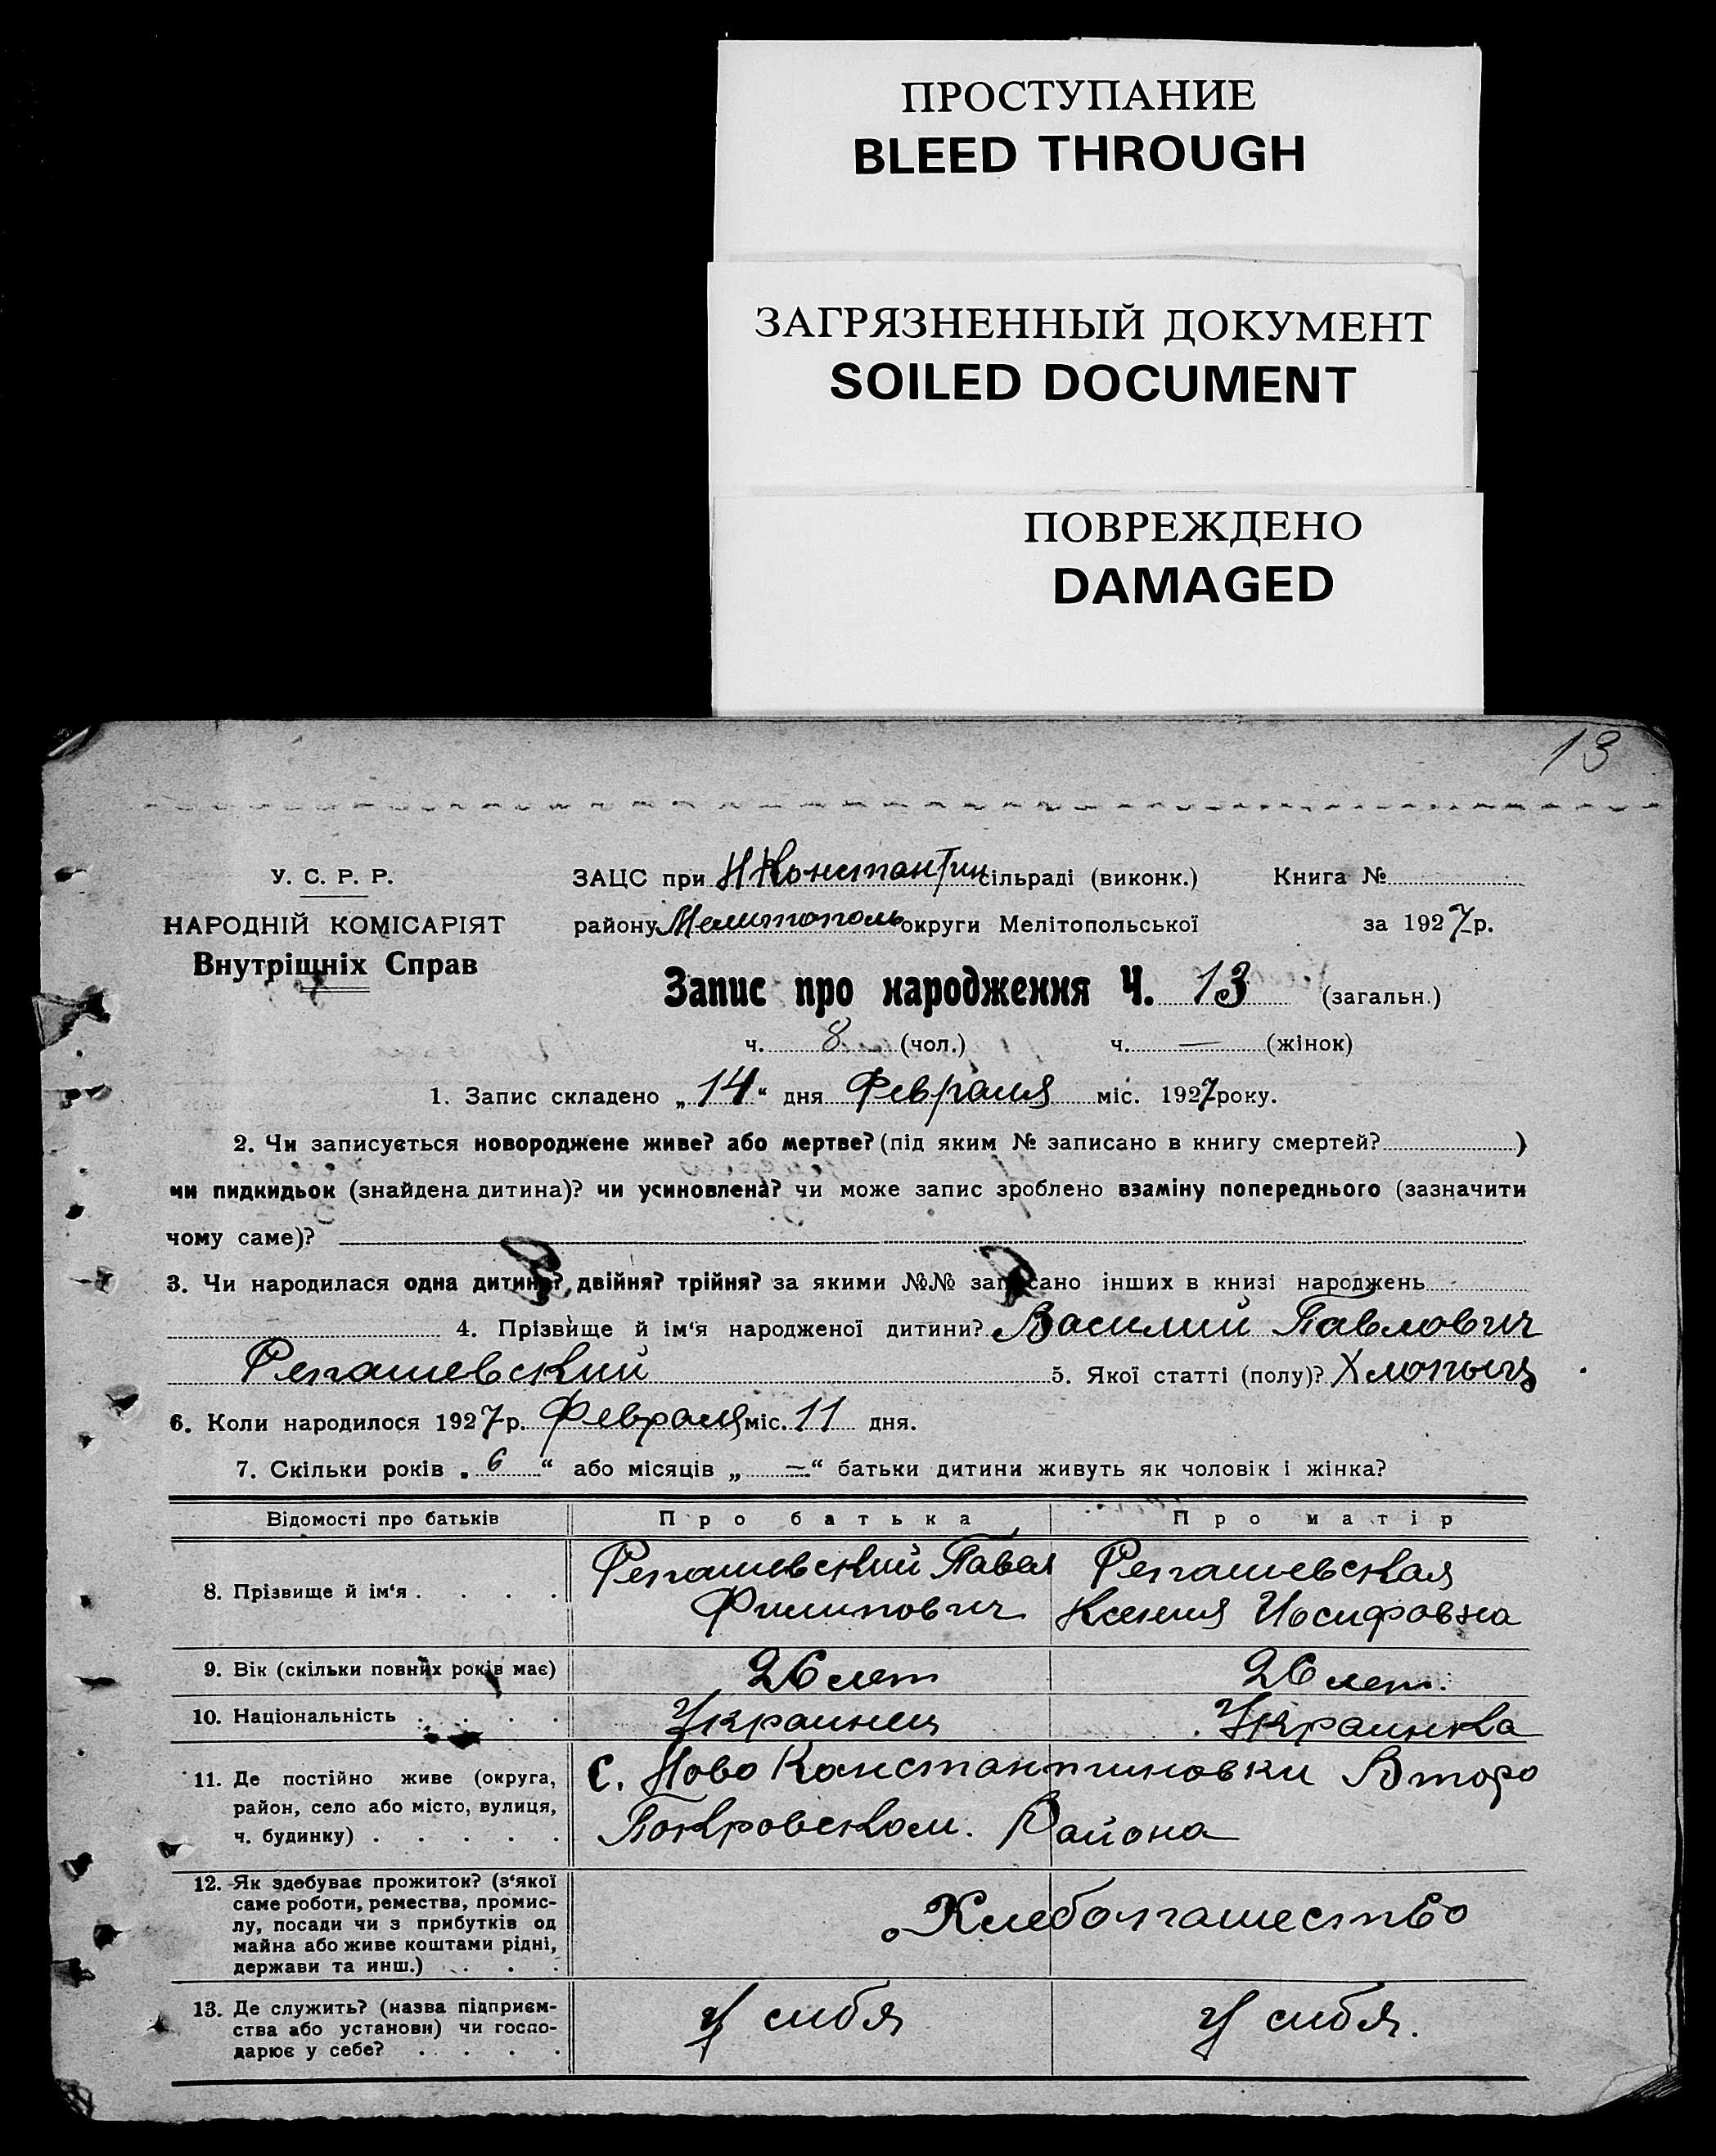 ПРОСТУПАНИЕ
BLEED THROUGH
ЗАГРЯЗНЕННЫЙ ДОКУМЕНТ
SOILED DOCUMENT
ПОВРЕЖДЕНО
DAMAGED
13
У. С. Р. Р.
НАРОДНІЙ КОМІСАРІЯТ
Внутрішніх Справ
ЗАЦС при Н Константин сільраді (виконк.) Книга №
району Мелитополь округи Мелітопольської за 1927 р.
Запис про народження Ч. 13 (загальн.)
ч. 8 (чол.) ч. — (жінок)
1. Запис складено „14“ дня Февраля міс. 1927 року.
2. Чи записується новороджене живе? або мертве? (під яким № записано в книгу смертей? )
чи пидкидьок (знайдена дитина)? чи усиновлена? чи може запис зроблено взаміну попереднього (зазначити
чому саме)?
3. Чи народилася одна дитина? двійня? трійня? за якими №№ записано інших в книзі народжень
4. Прізвище й ім‘я народженої дитини? Василий Павлович
Репашевский 5. Якої статті (полу)? Хлопыц
6. Коли народилося 1927 р. Февраля міс. 11 дня.
7. Скільки років „6“ або місяців „—“ батьки дитини живуть як чоловік і жінка?
Відомості про батьків Про батька Про матір
8. Прізвище й ім‘я . . . . Репашевский Павел Репашевская
Филипович Ксения Иосифовна
9. Вік (скільки повних років має) 26 лет 26 лет.
10. Національність . . . . Украинец Украинка
11. Де постійно живе (округа, с. Ново Константиновки Второ
район, село або місто, вулиця, Покровском. Района
ч. будинку) . . . . .
12. Як здебуває прожиток? (з‘якої
саме роботи, ремества, промис-
лу, посади чи з прибутків од Хлебопашество
майна або живе коштами рідні,
держави та инш.) . . .
13. Де служить? (назва підприєм- У сибя У сибя.
ства або установи) чи госпо-
дарює у себе? . . . .